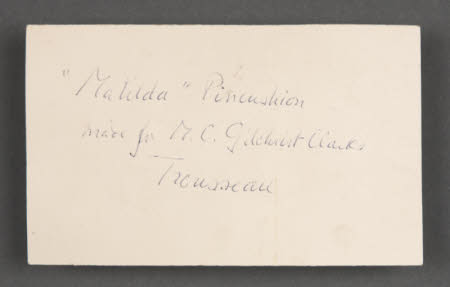 "Matilda" Pincushion
made for M. C. Gilchrist Clarks
Trousseau